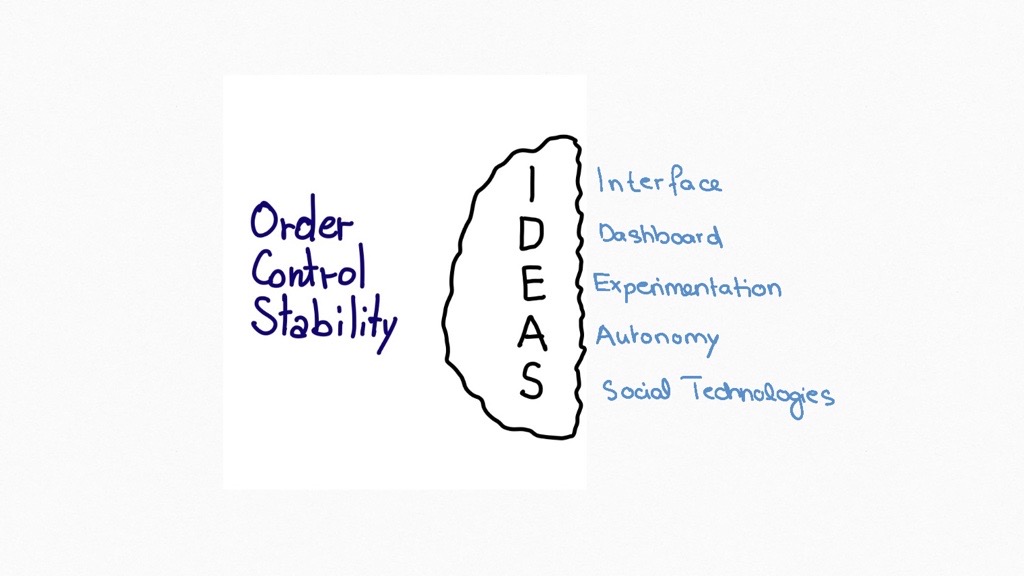 Order
Control
Stability
I
D
E
A
S
Interface
Dashboard
Experimentation
Autonomy
Social Technologies